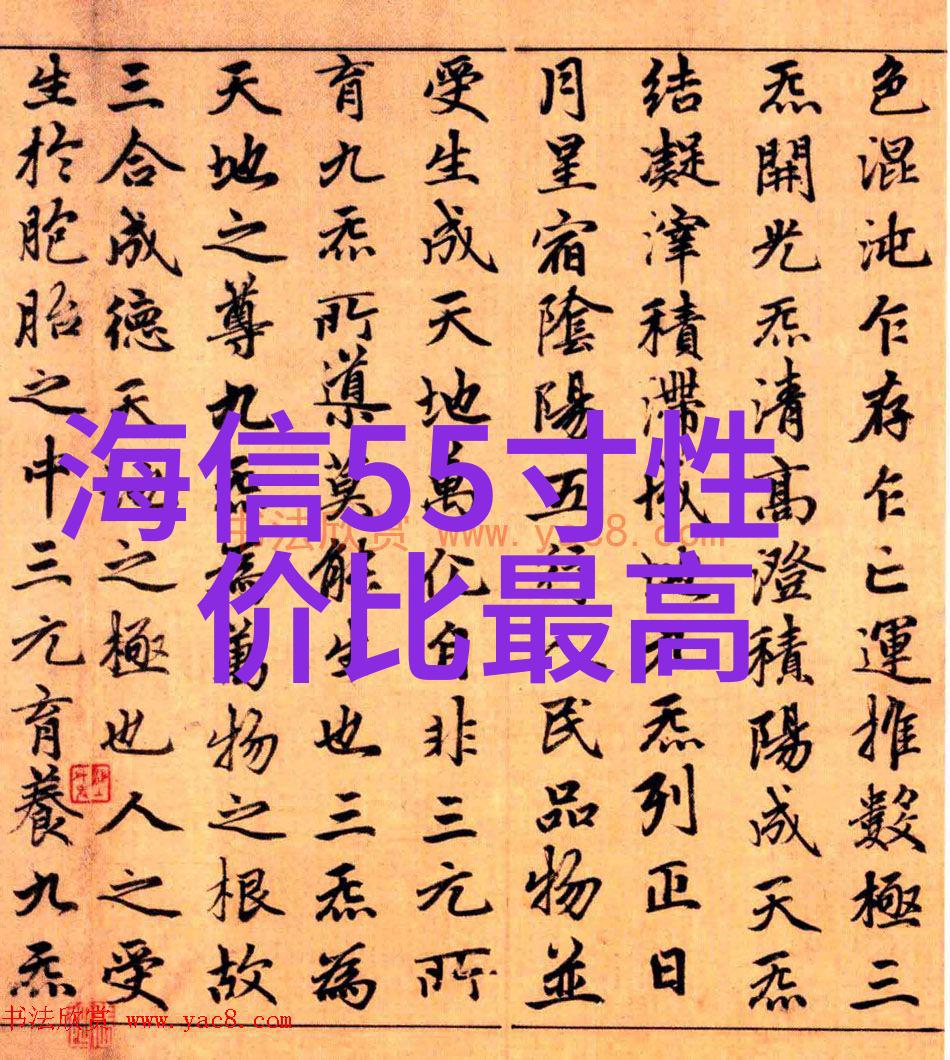 色混沌乍存乍亡運推數極三
炁開光炁清高澄積陽成天炁
結凝滓積滯成地九炁列正日
月星宿陰陽五行人民品物並
受生成天地萬化自非三元所
育九炁所導莫能生也三炁為
天地之尊九炁為萬物之根故
三合成德天地之極也人之受
生於胞胎之中三元育養九炁
海信55寸性
价比最高
书法欣赏 www.yac8.com
书法欣赏 www.yac8.com